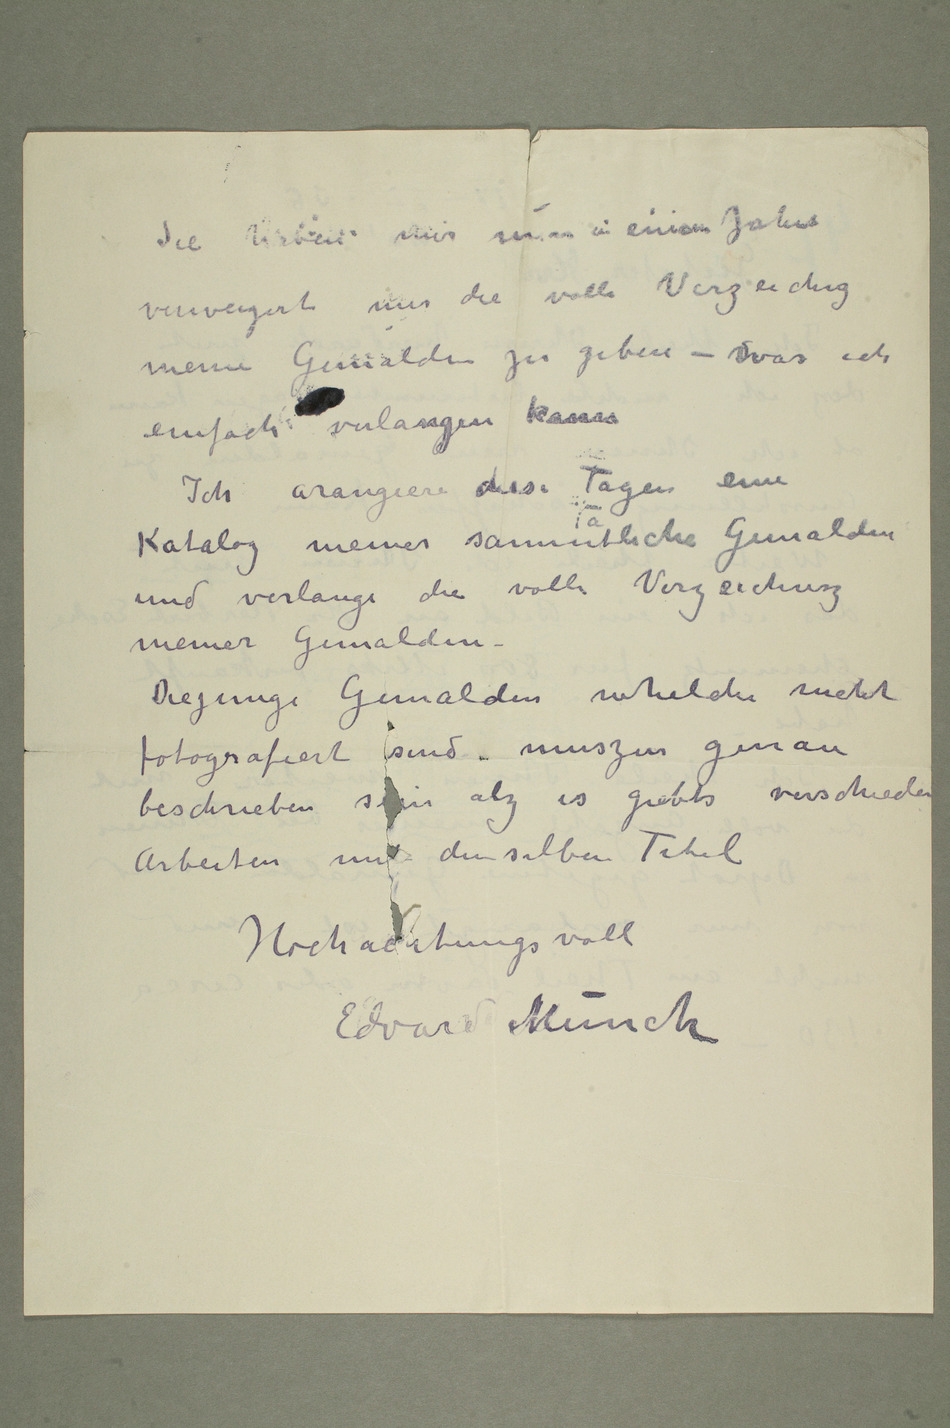 Sie haben mir nun in einem Jahre
verweigert mir die volle Verzeichng
meine Gemälden zu geben – was ich
einfach verlangen kann
Ich arangiere diese Tagen eine
Ta
Katalog meiner sammtliche Gemalden
und verlange die volle Verzeichnusz
meiner Gemalden –
Diejenige Gemalden whelche nicht
fotografiert sind – muszen genau
beschrieben sein alz es giebts verschieden
Arbeiten mit denselben Titel
Hochachtungsvoll
Edvard Munch